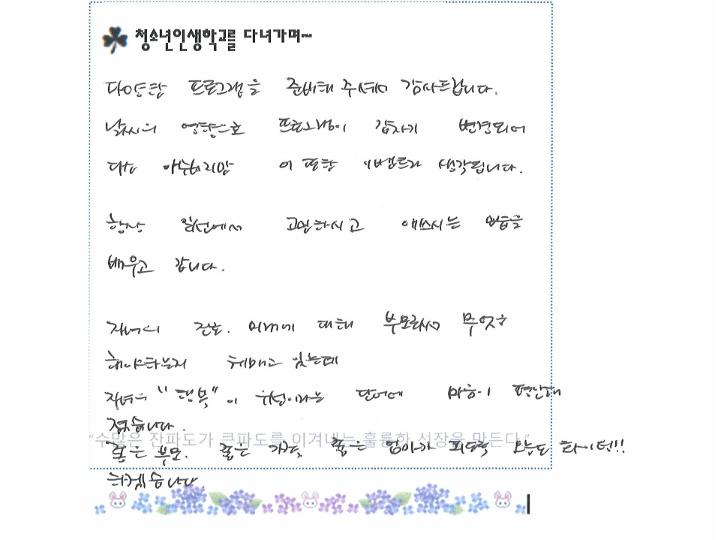 청소년인생학교를 다녀가며~
다양한 프로그램을 준비해 주셔서 감사드립니다.
날씨의 영향으로 프로그램이 갑자기 변경되어
다소 아쉽지만 이 또한 이벤트라 생각됩니다.
항상 일선에서 고민하시고 애쓰시는 모습을
배우고 갑니다.
자녀의 진로. 미래에 대해 부모로서 무엇을
해야하는지 헤매고 있는데
자녀의 "행복"이 우선이라는 단어에 마음이 편안해
졌습니다.
"수많은 잔파도가 큰파도를 이겨내는 훌륭한 선장을 만든다."
좋은 부모. 좋은 가족, 좋은 엄마가 되도록 오늘도 화이팅!!
하겠습니다